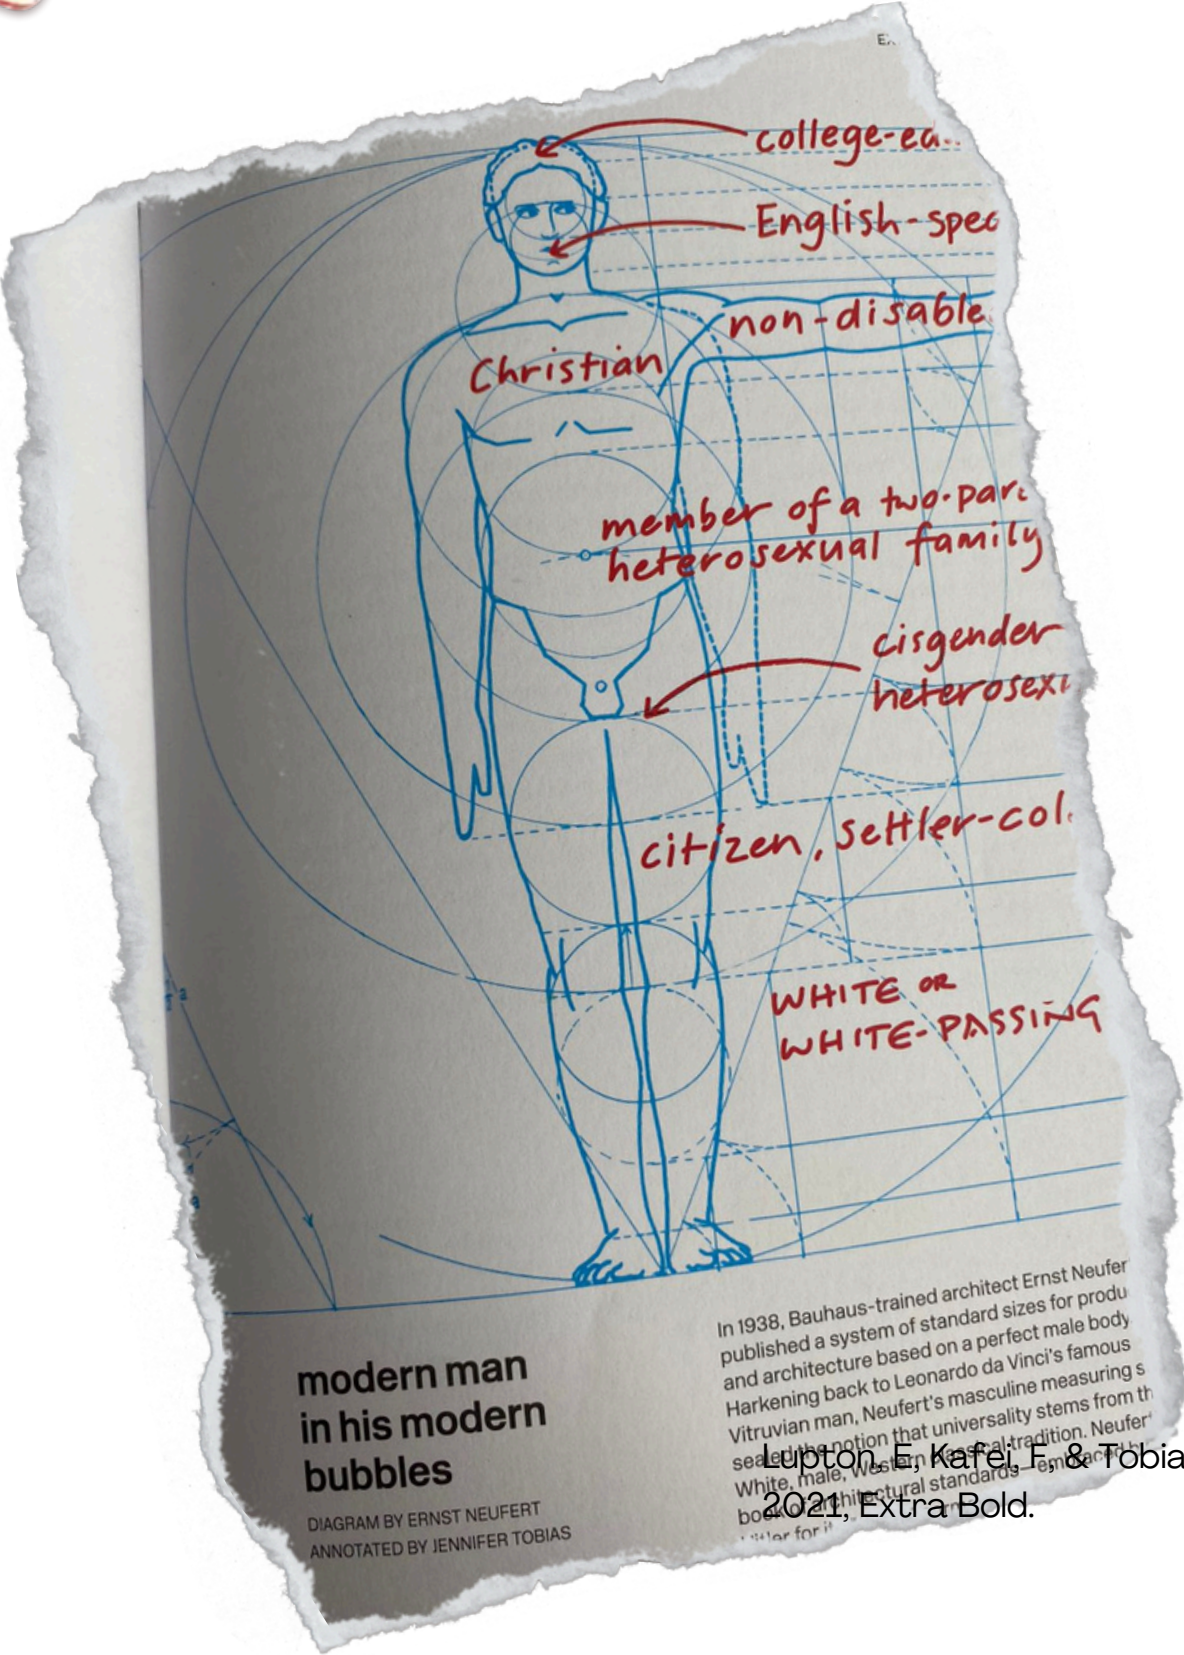 college-ed
English-spec
non-disable
Christian
member of a two-par
heterosexual family
cisgender
heterosex
citizen, settler-col
WHITE OR
WHITE-PASSING
modern man
in his modern
bubbles
DIAGRAM BY ERNST NEUFERT
ANNOTATED BY JENNIFER TOBIAS
In 1938, Bauhaus-trained architect Ernst Neufer
published a system of standard sizes for produ
and architecture based on a perfect male body
Harkening back to Leonardo da Vinci's famous
Vitruvian man, Neufert's masculine measuring s
sealed the notion that universality stems from th
White, male, Western classical tradition. Neufer
book of architectural standards—embraced b
for
Lupton, E, Kafei, F, & Tobia
2021, Extra Bold.